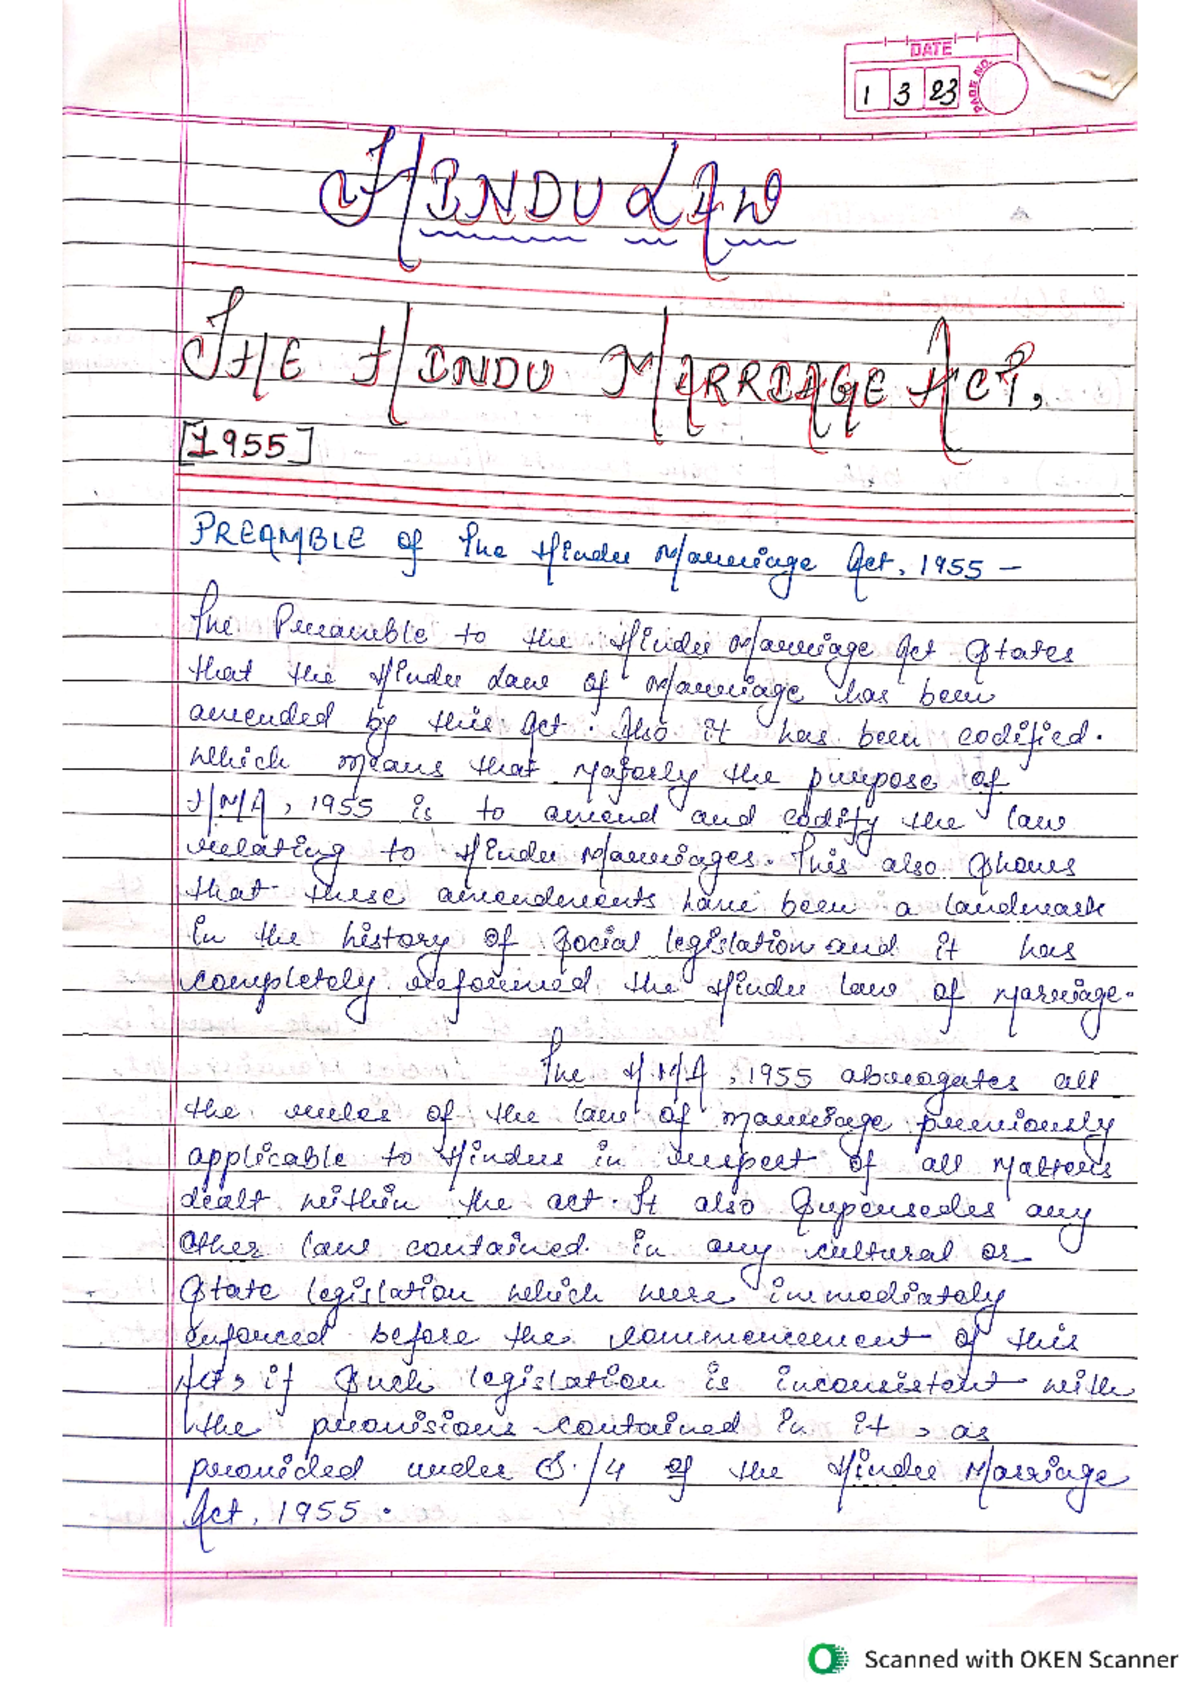 DATE
1 3 23
PAGE NO.
HINDU LAW
THE HINDU MARRIAGE ACT,
[1955]
PREAMBLE of The Hindu Marriage Act, 1955 -
The Preamble to the Hindu Marriage Act States
that the Hindu Law of Marriage has been
amended by this Act. Also it has been codified.
which means that majorly the purpose of
HMA, 1955 is to amend and codify the law
relating to Hindu Marriages. This also shows
that these amendments have been a landmark
in the history of Social legislation and it has
completely reformed the Hindu law of Marriage.
The H.M.A, 1955 abrogates all
the rules of the law of marriage previously
applicable to Hindus in respect of all Matters
dealt within the act. It also Supersedes any
other law contained in any cultural or
State legislation which were immediately
enforced before the commencement of this
Act, if Such legislation is inconsistent with
the provisions contained in it, as
provided under S./4 of the Hindu Marriage
Act, 1955.
Scanned with OKEN Scanner